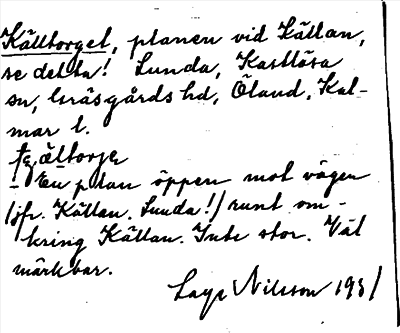 Källtorget, planen vid Källan,
se detta! Lunda, Kastlösa
sn, Gräsgårds hd, Öland, Kal-
mar l.
En plan öppen mot vägen
(jfr. Källan. Lunda!) runt om-
kring Källan. Inte stor. Väl
märkbar.
Nilsson 1931